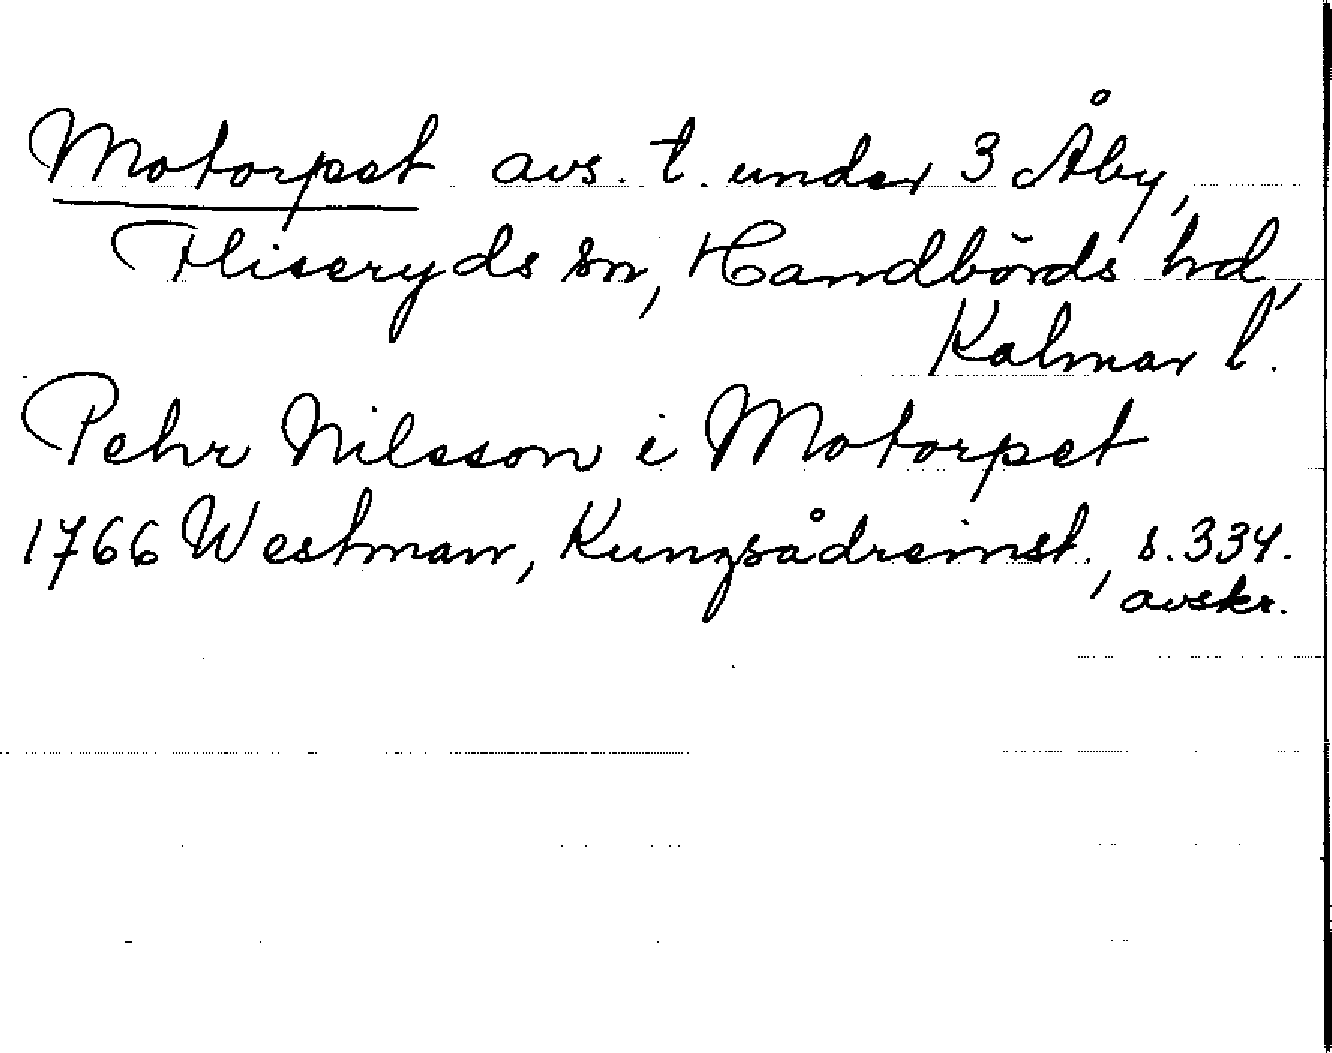 Motorpet avs. t. under 3 Åby,
Fliseryds sn, Handbörds hd,
Kalmar l.
Pehr Nilsson i Motorpet
1766 Westman, Kungsådreinst., s. 334.
avskr.